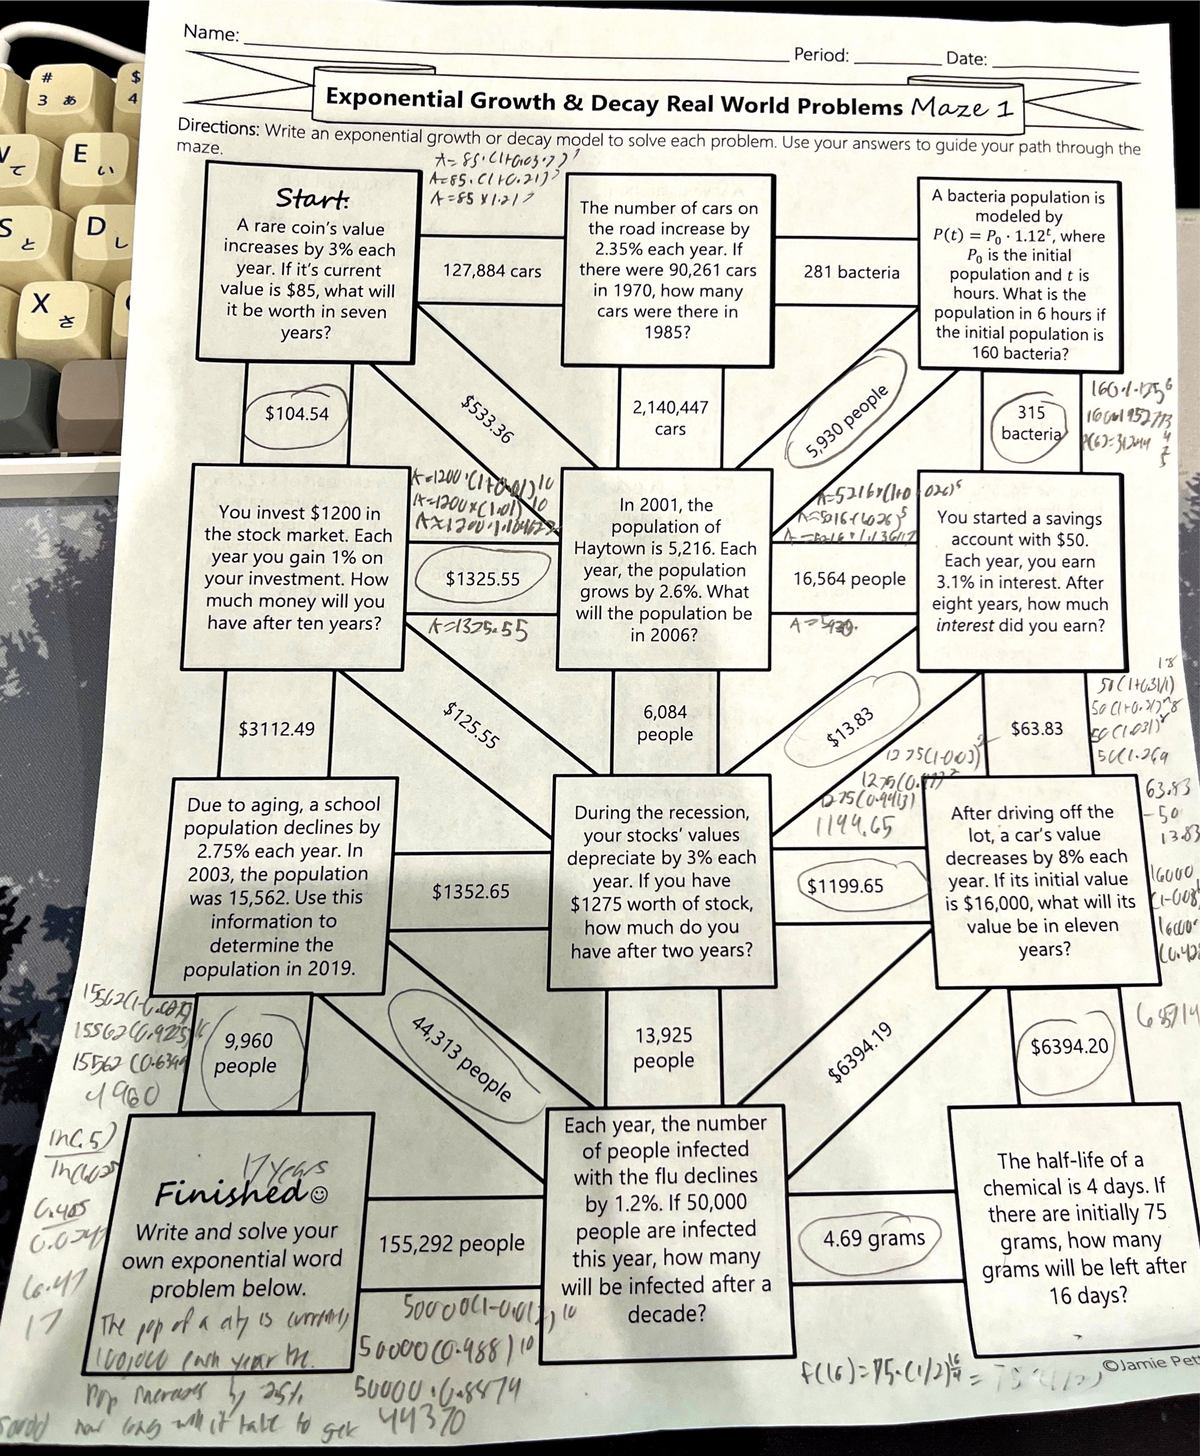 #
3 あ
$
4
て
E
い
S
と
D
し
X
さ
Name:
Period:
Date:
Exponential Growth & Decay Real World Problems Maze 1
Directions: Write an exponential growth or decay model to solve each problem. Use your answers to guide your path through the
maze.
A=85·(1+0.21)7
A=85×1.217
Start:
A rare coin's value
increases by 3% each
year. If it's current
value is $85, what will
it be worth in seven
years?
127,884 cars
The number of cars on
the road increase by
2.35% each year. If
there were 90,261 cars
in 1970, how many
cars were there in
1985?
281 bacteria
A bacteria population is
modeled by
P(t) = P₀ · 1.12ᵗ, where
P₀ is the initial
population and t is
hours. What is the
population in 6 hours if
the initial population is
160 bacteria?
$104.54
$533.36
2,140,447
cars
5,930 people
315
bacteria
You invest $1200 in
the stock market. Each
year you gain 1% on
your investment. How
much money will you
have after ten years?
A=1200·(1+0.01)10
A=1200×(1.01)10
$1325.55
A=1325.55
In 2001, the
population of
Haytown is 5,216. Each
year, the population
grows by 2.6%. What
will the population be
in 2006?
16,564 people
You started a savings
account with $50.
Each year, you earn
3.1% in interest. After
eight years, how much
interest did you earn?
$3112.49
$125.55
6,084
people
$13.83
$63.83
50(1.031)8
50(1.269
63.83
-50
13.83
Due to aging, a school
population declines by
2.75% each year. In
2003, the population
was 15,562. Use this
information to
determine the
population in 2019.
$1352.65
During the recession,
your stocks' values
depreciate by 3% each
year. If you have
$1275 worth of stock,
how much do you
have after two years?
1275(1-0.03)2
1199.65
$1199.65
After driving off the
lot, a car's value
decreases by 8% each
year. If its initial value
is $16,000, what will its
value be in eleven
years?
16000
9,960
people
44,313 people
13,925
people
$6394.19
$6394.20
17 years
Finished☺
Write and solve your
own exponential word
problem below.
155,292 people
Each year, the number
of people infected
with the flu declines
by 1.2%. If 50,000
people are infected
this year, how many
will be infected after a
decade?
4.69 grams
The half-life of a
chemical is 4 days. If
there are initially 75
grams, how many
grams will be left after
16 days?
The pop of a city is currently
100,000 each year the
pop increases by 2.5%
how long will it take to get
50000(1-0.012)10
50000(0.988)10
50000·0.8874
44370
©Jamie Pet